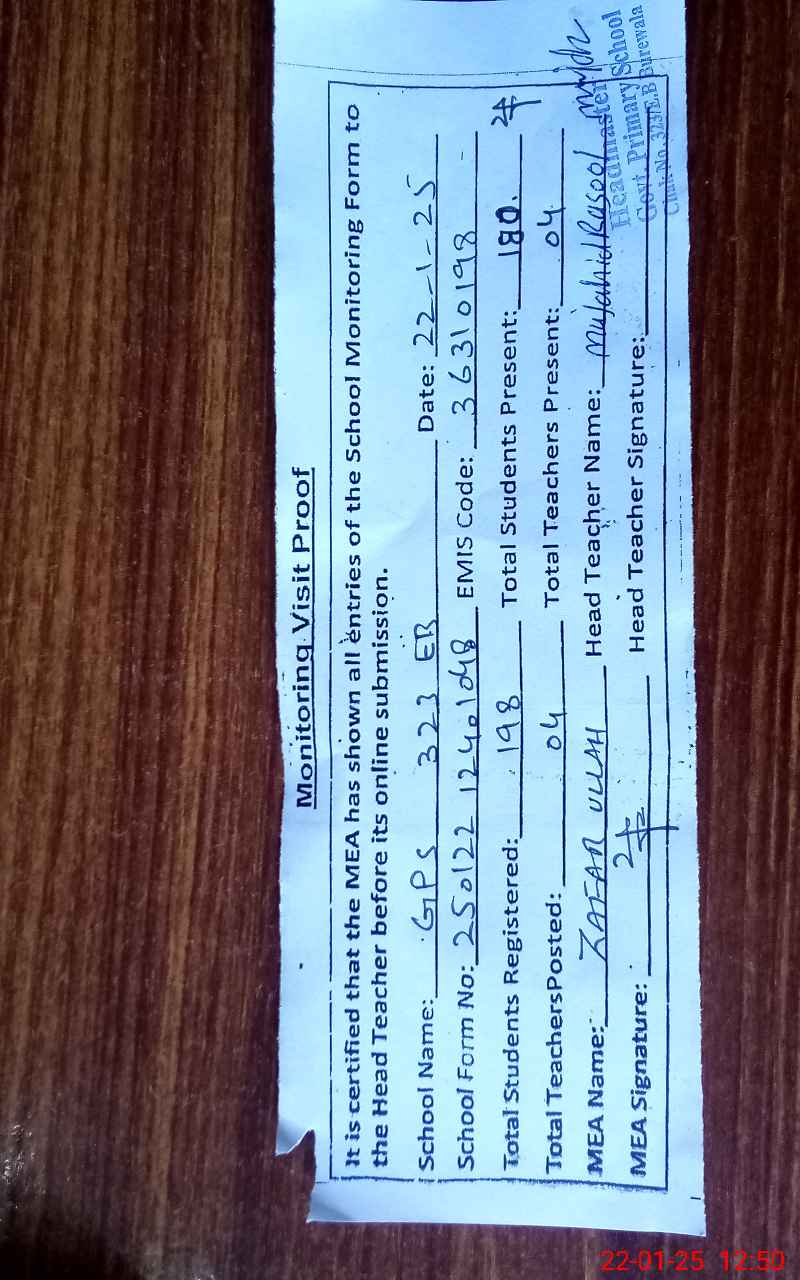 Monitoring Visit Proof
It is certified that the MEA has shown all entries of the School Monitoring Form to
the Head Teacher before its online submission.
School Name: GPS 323 EB Date: 22-1-25
School Form No: 25012212401048 EMIS Code: 36310198
Total Students Registered: 198 Total Students Present: 180.
Total TeachersPosted: 04 Total Teachers Present: 04
MEA Name: ZAFAR ULLAH Head Teacher Name: Mujahid Rasool
MEA Signature: Head Teacher Signature:
Headmaster
Govt. Primary School
Chak No. 323/E.B Burewala
22-01-25 12:50